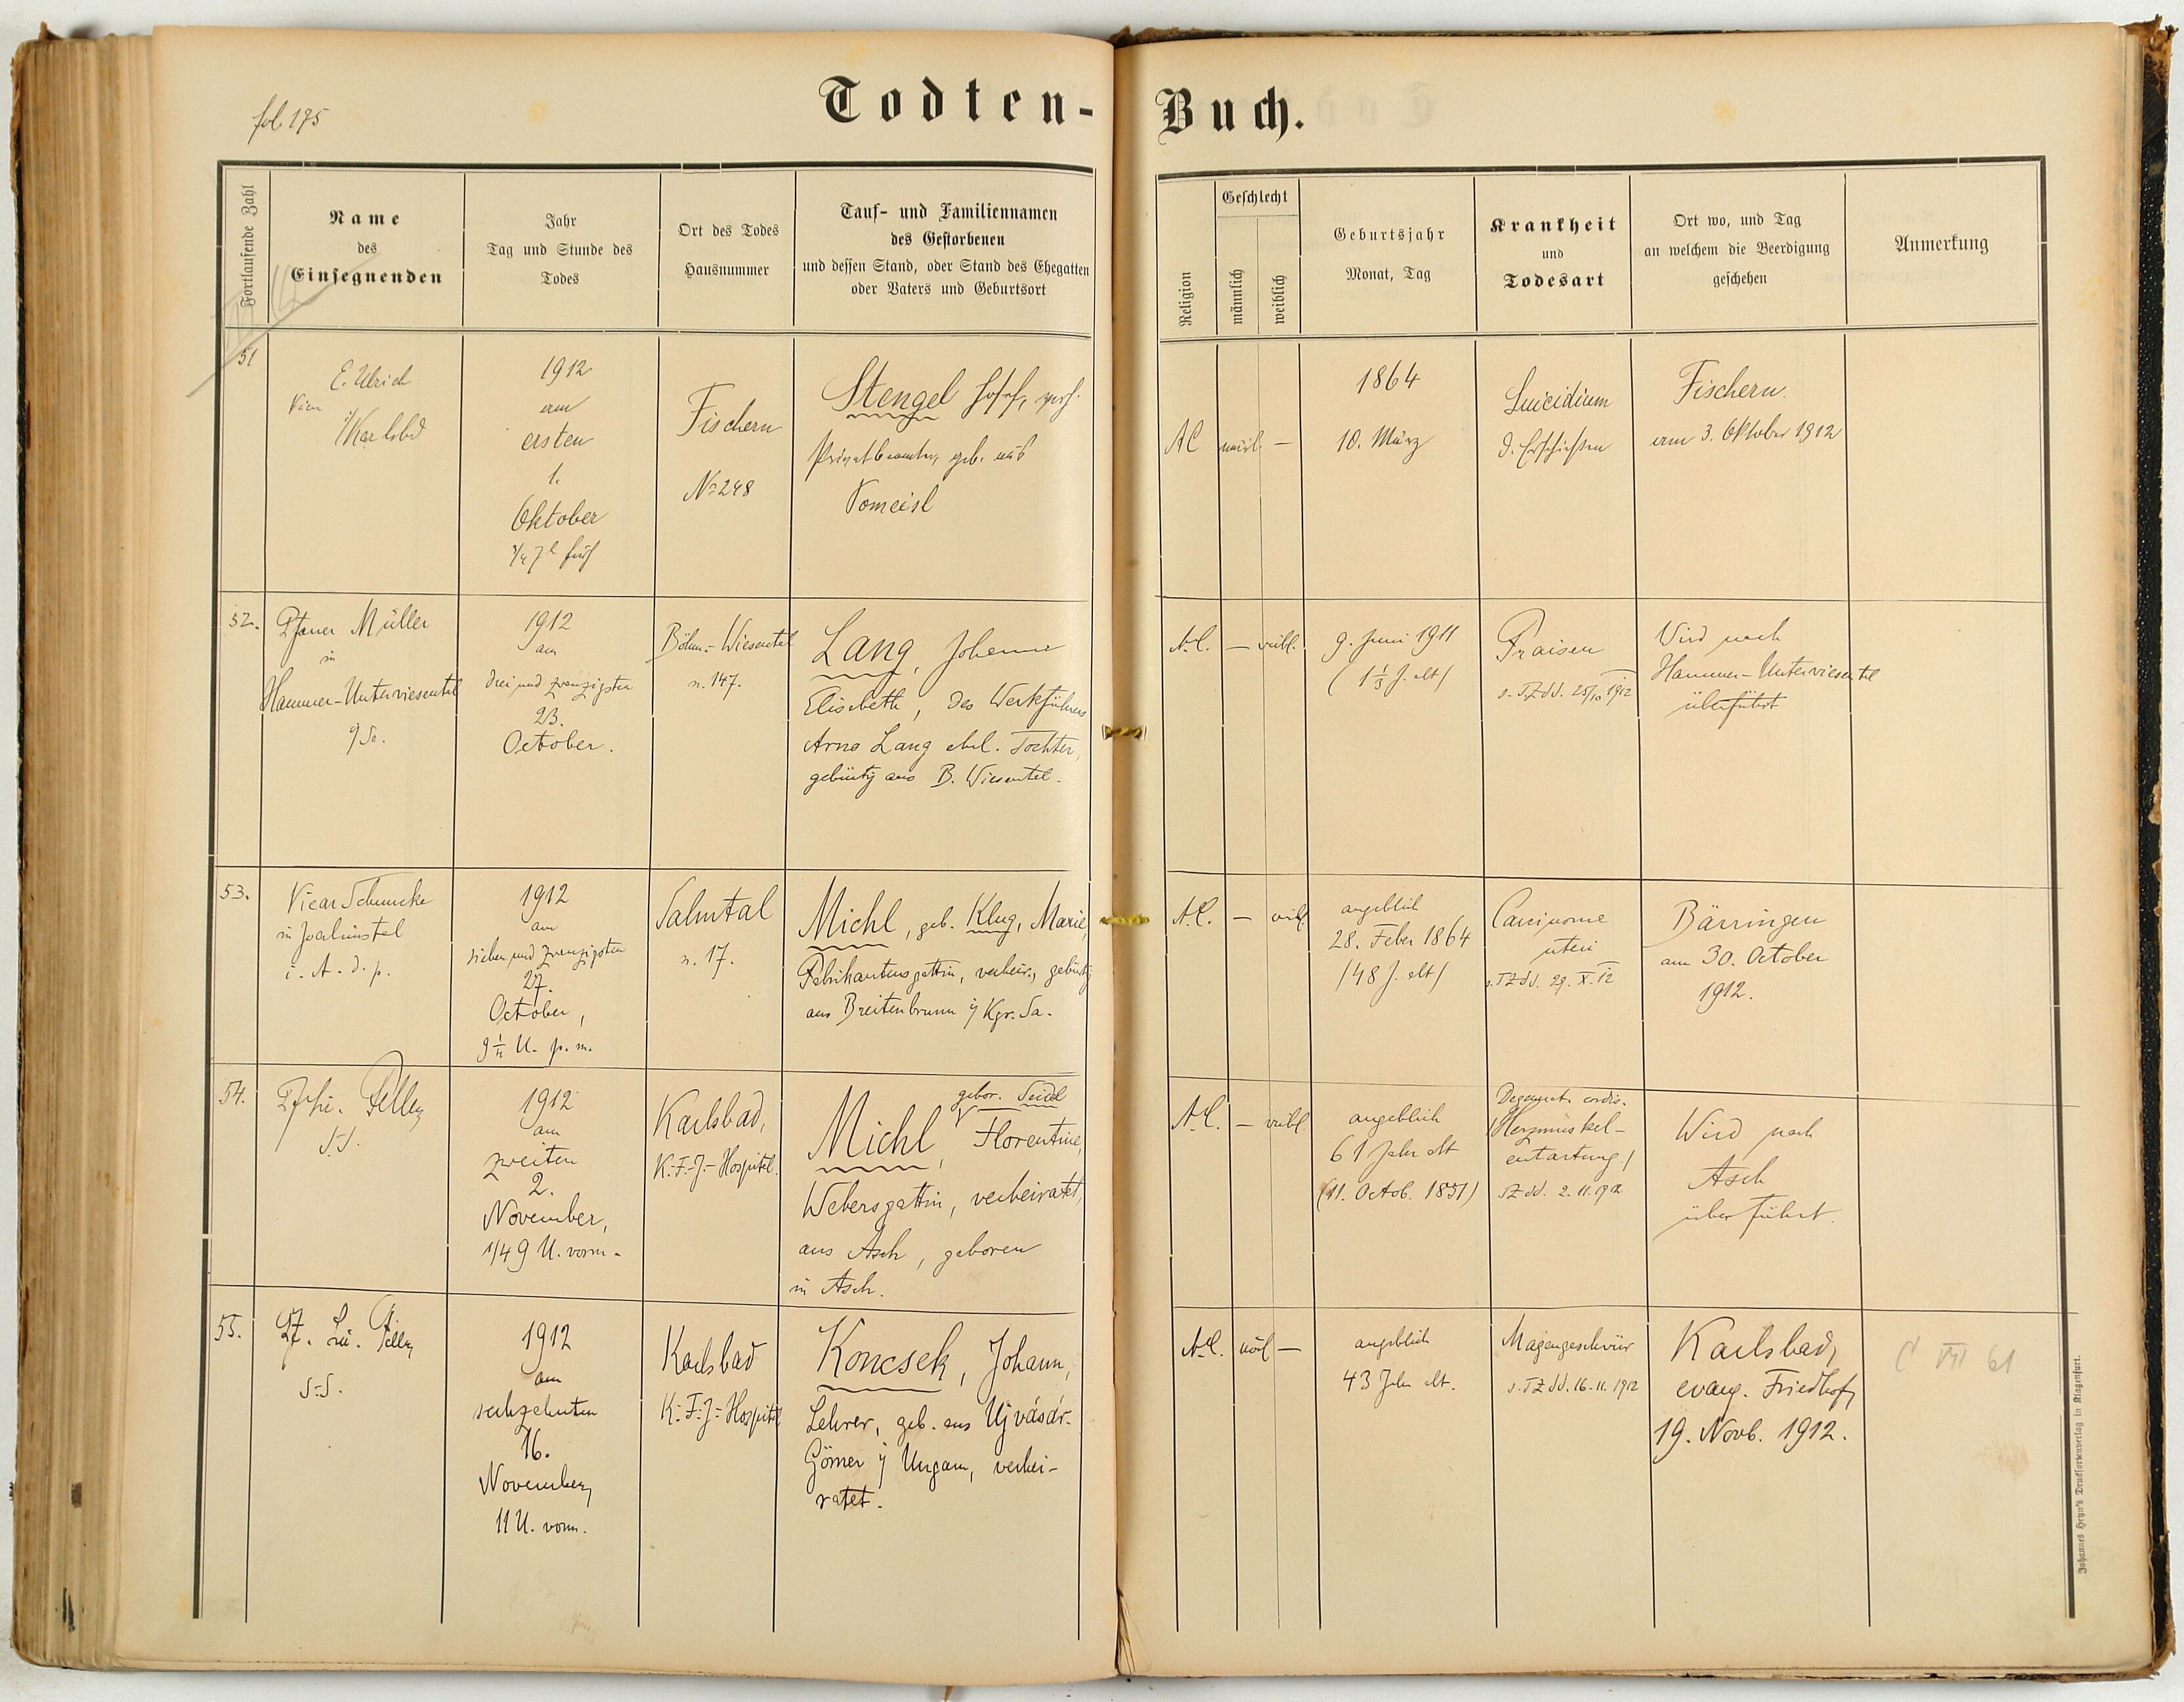 fol. 175
Todten-Buch.
Fortlaufende Zahl
Name
des
Einsegnenden
Jahr
Tag und Stunde des
Todes
Ort des Todes
Hausnummer
Tauf- und Familiennamen
des Gestorbenen
und dessen Stand, oder Stand des Ehegatten
oder Vaters und Geburtsort
Religion
Geschlecht
männlich
weiblich
Geburtsjahr
Monat, Tag
Krankheit
und
Todesart
Ort wo, und Tag
an welchem die Beerdigung
geschehen
Anmerkung
51
E. Ulrich
Vicar
i/Karlsbd
1912
am
ersten
1.
Oktober
früh
Fischern
No 248
Stengel Josef,
Privatbeamter, geb. aus
Pomeisl
AC
männl.
—
1864
10. März
Suicidium
d. Erschießen
Fischern
am 3. Oktober 1912
52.
Pfarrer Müller
in
Hammer-Unterwiesental
1912
am
drei und zwanzigsten
23.
October.
Böhm.-Wiesental
n. 147.
Lang, Johanne
Elisabeth, des Werkführers
Arno Lang ehel. Tochter,
gebürtig aus B. Wiesental.
A.C.
—
weibl.
9. Juni 1911
(1 1/3 J. alt)
Fraisen
s. TZ dd. 25/10 1912
Wird nach
Hammer-Unterwiesental
überführt
53.
Vicar Schmucke
in Joachimstal
i. A. d. p.
1912
am
sieben und zwanzigsten
27.
October,
9 1/4 U. p. m.
Salmtal
n. 17.
Michl, geb. Klug, Marie,
Fabrikantensgattin, verheir., gebürtig
aus Breitenbrunn i/ Kgr. Sa.
A.C.
—
weibl.
angeblich
28. Feber 1864
/48 J. alt/
Carcinome
uteri
s. TZ dd. 29. X. 12
Bärringen
am 30. October
1912.
54.
1912
am
zweiten
2.
November,
1/4 9 U. vorm.
Karlsbad,
K.-F.-J.-Hospital.
gebor. Seidl
Michl, Florentine,
Webersgattin, verheiratet,
aus Asch, geboren
in Asch.
A.C.
—
weibl.
angeblich
61 Jahr alt
(11. Octob. 1851)
Degenerat. cordis.
/Herzmuskel-
entartung/
TZ dd. 2. 11. 1912
Wird nach
Asch
überführt.
55.
1912
am
sechzehnten
16.
November,
11 U. vorm.
Karlsbad
K.-F.-J.-Hospital
Koncsek, Johann,
Lehrer, geb. aus Ujvásár-
Gömer i/ Ungarn, verhei-
ratet.
A.C.
männl.
—
angeblich
43 Jahr alt.
Magengeschwür
s. TZ dd. 16. 11. 1912
Karlsbad,
evang. Friedhof,
19. Novb. 1912.
C VII 61
Johannes Heyn's Drucksortenverlag in Klagenfurt.